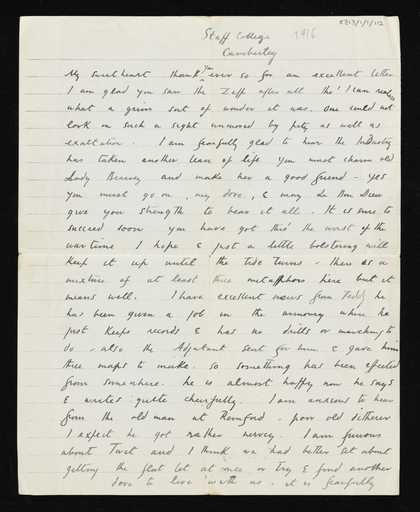 8213/1/1/112
Staff College 1916
Camberley
My sweetheart thank you ever so for an excellent letter
I am glad you saw the Zepp after all tho' I can realise
what a grim sort of wonder it was. One could not
look on such a sight unmoved by pity as well as
exaltation. I am fearfully glad to hear the Industry
has taken another lease of life you must charm old
Lady and make her a good friend - yes
you must go on, my dove, & may Le Bon Dieu
give you strength to bear it all. It is sure to
succeed soon you have got thro' the worst of the
war time I hope & just a little bolstering will
keep it up until the tide turns - there is a
mixture of at least three metaphors here but it
means well. I have excellent news from Teddy he
has been given a job in the armoury where he
just keeps records & has no drills or marching to
do - also the Adjutant sent for him & gave him
three maps to make. So something has been effected
from somewhere. he is almost happy now he says
& writes quite cheerfully. I am anxious to hear
from the old man at Romford - poor old ditherer
I expect he got rather nervy. I am furious
about and I think we had better set about
getting the flat let at once or try & find another
dove to live with us. it is fearfully